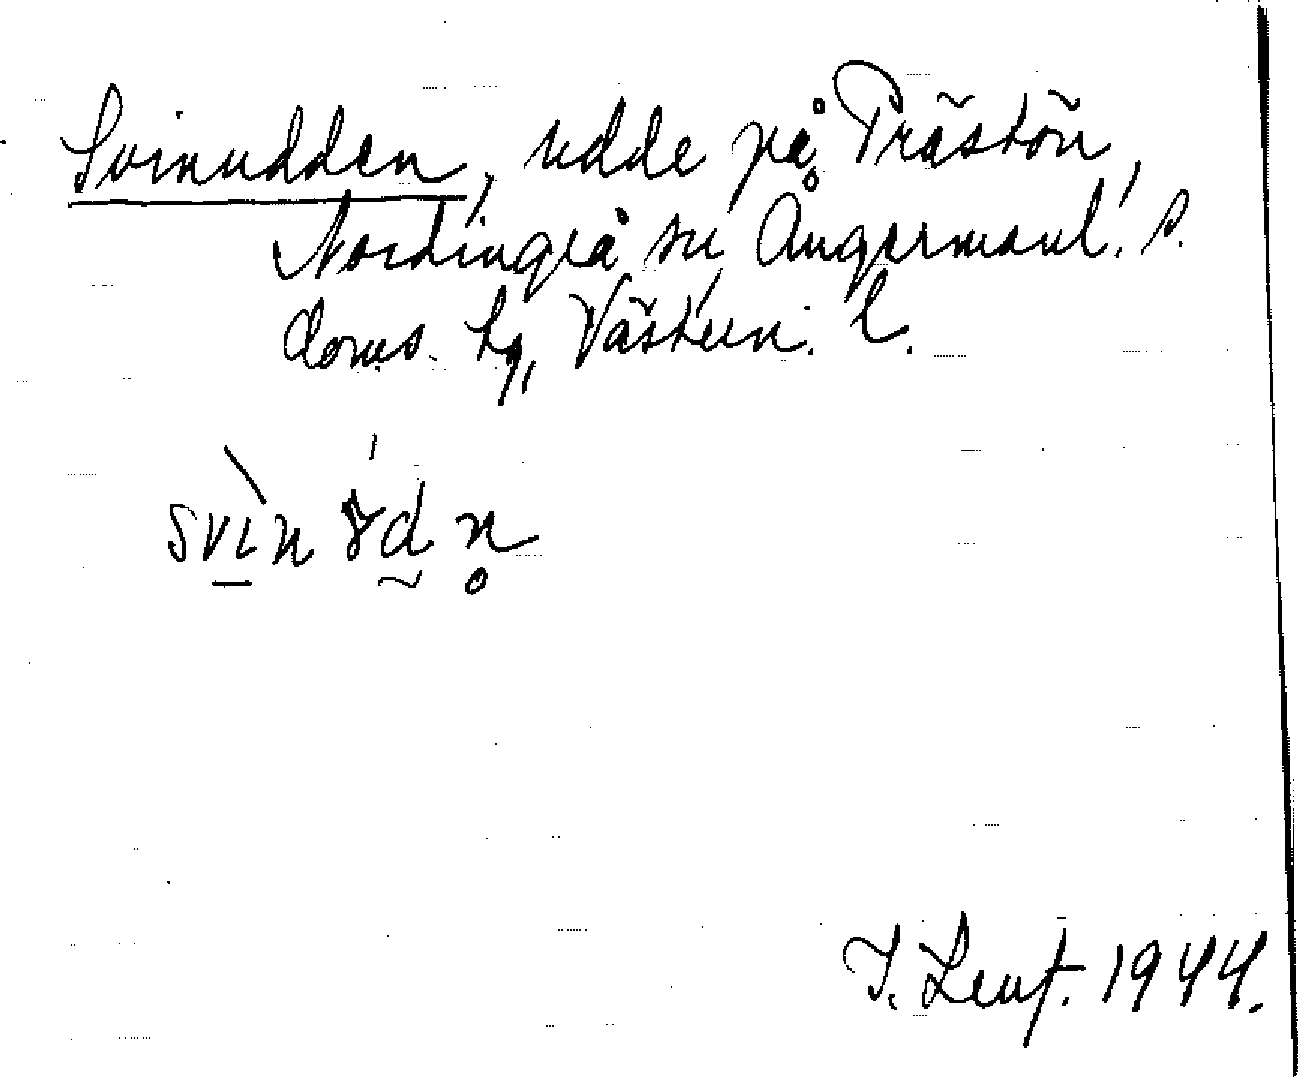 Svinudden, udde på Prästön,
Nordingrå sn Ångermanl. s.
doms. tg, Västern. l.
svìn 
I. Leuf. 1944.